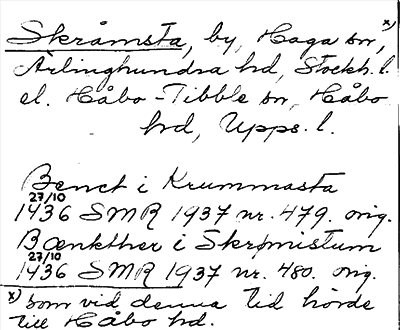 x)
Skråmsta, by, Haga sn,
Ärlinghundra hd, Stockh. l.
el. Håbo-Tibble sn, Håbo
hd, Upps. l.
Benct i Krummasta
27/10
1436 SMR 1937 nr. 479. orig.
Bænkther i Skrømistum
27/10
1436 SMR 1937 nr. 480. orig.
x) som vid denna tid hörde
till Håbo hd.